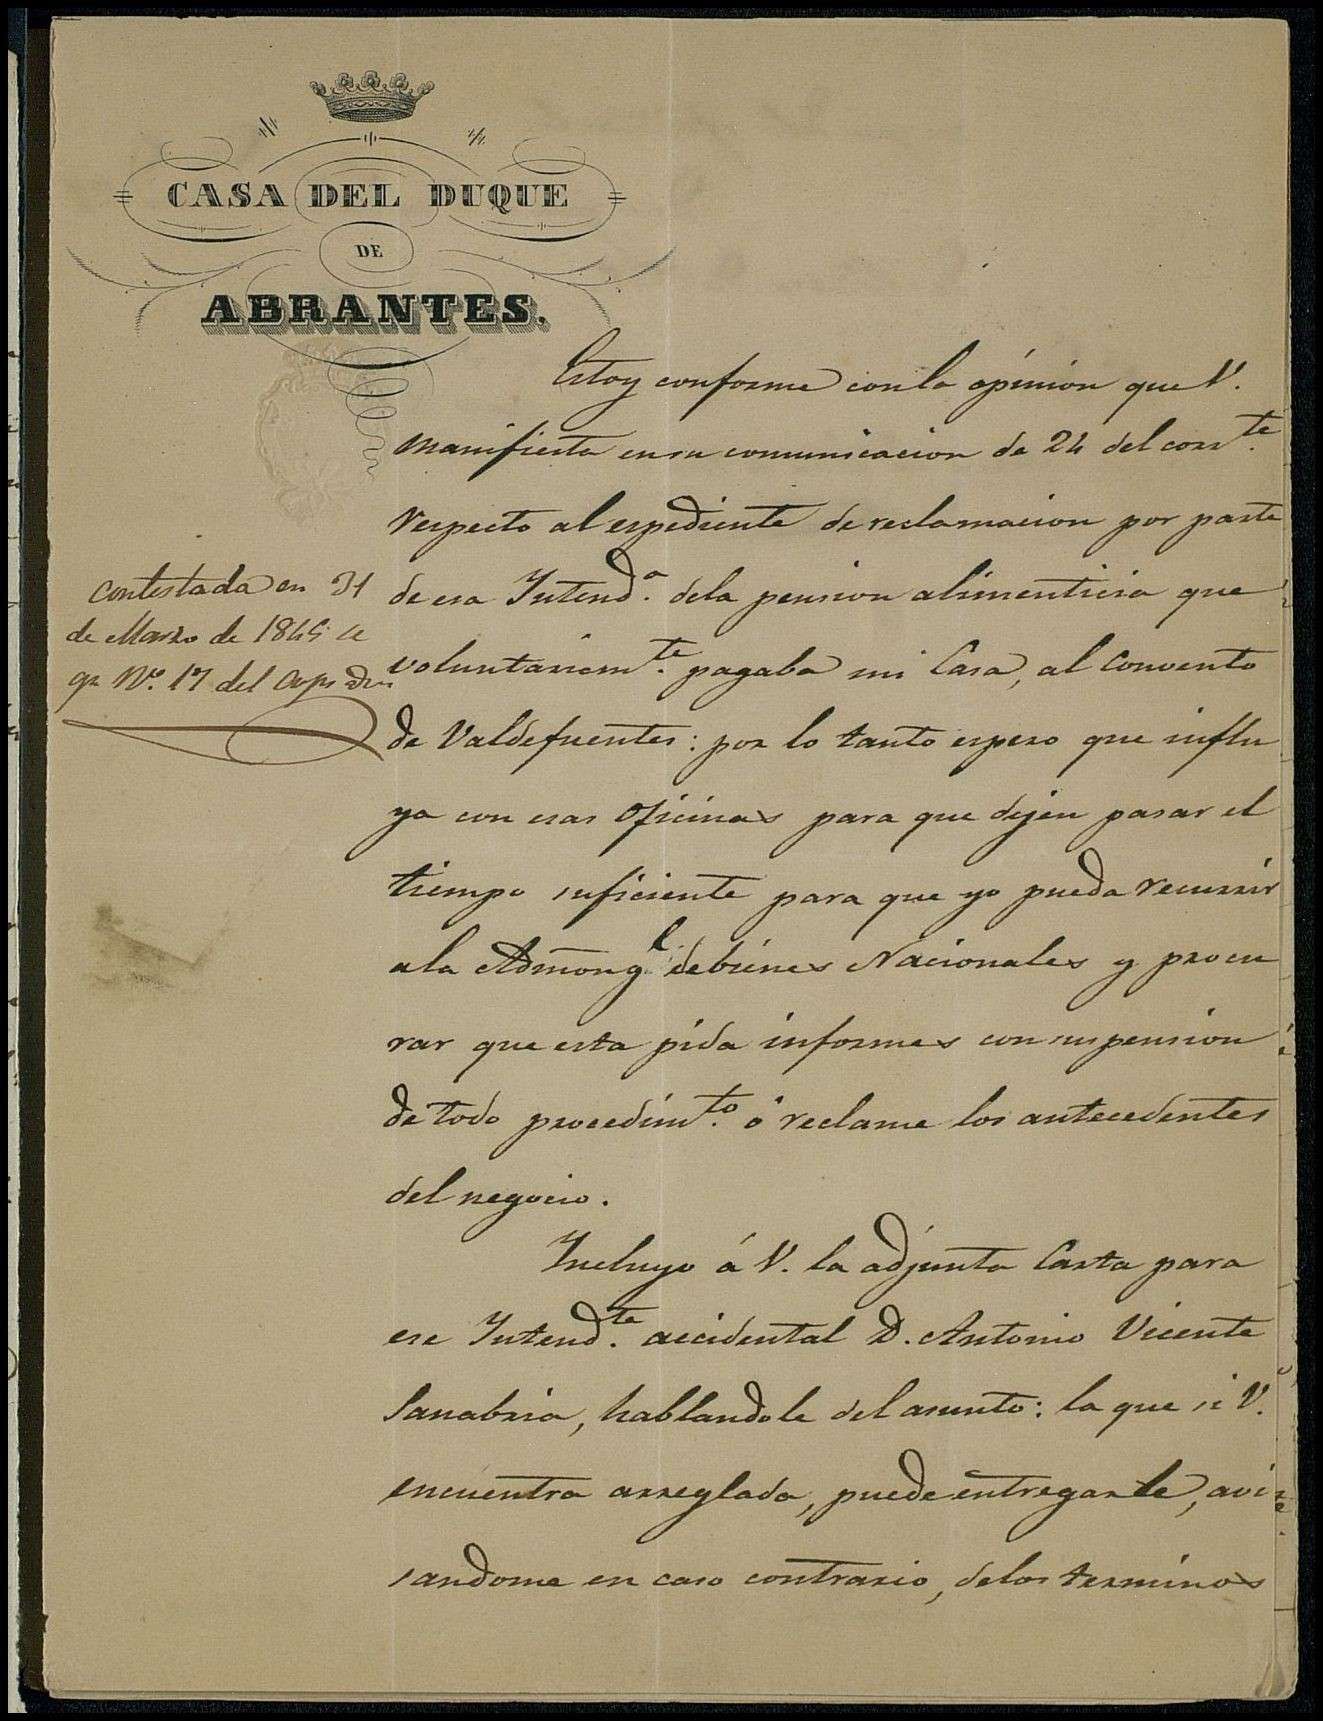 CASA DEL DUQUE
DE
ABRANTES.
Estoy conforme con la opinion que V.
manifiesta en su comunicacion de 24 del corr.te
respecto al espediente de reclamacion por parte
de esa Intend.a dela pension alimenticia que
voluntariam.te pagaba mi Casa, al Convento
de Valdefuentes: por lo tanto espero que influ
ya con esas oficinas para que dejen pasar el
tiempo suficiente para que yo pueda recurrir
ala Admōn g.l debienes Nacionales y procu
rar que esta pida informes con suspension
de todo procedim.to ó reclame los antecedentes
del negocio.
Incluyo á V. la adjunta Carta para
ese Intend.te accidental D. Antonio Vicente
Sanabria, hablandole del asunto: la que si V.
encuentra arreglada, puede entregarle, avi
sandome en caso contrario, delos terminos
contestada en 31
de Marzo de 1845
N.o 17 del